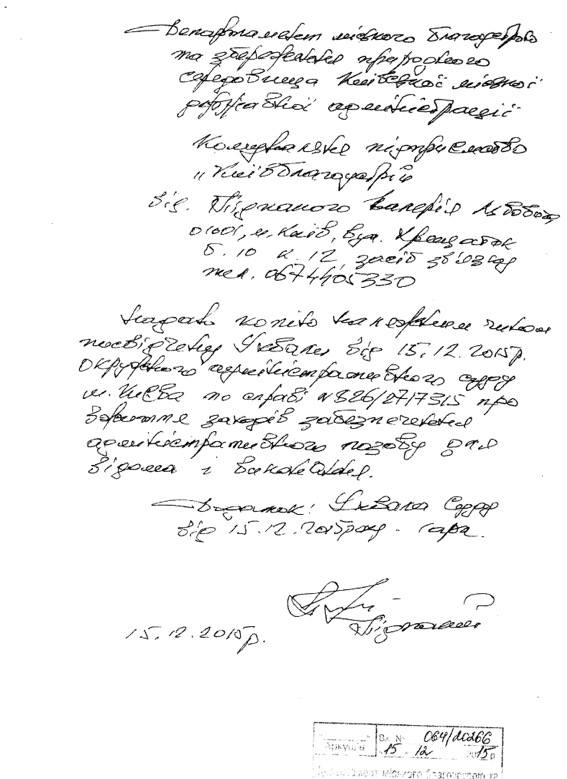 Департамент міського благоустрою
та збереження природного
середовища Київської міської
державної адміністрації
Комунальне підприємство
"Київблагоустрій"
від Підпалого Валерія Львовича
01001, м. Київ, вул. Хрещатик
б. 10 к. 12 засіб зв'язку
тел. 0674405330
Надаю копію належним чином
посвідчену Ухвали від 15.12.2015р.
Окружного адміністративного суду
м. Києва по справі №826/27173/15 про
вжиття заходів забезпечення
адміністративного позову для
відома і виконання.
Додаток: Ухвала Суду
від 15.12.2015 року - 1 арк.
Підпалий
15.12.2015р.
Аркушів Вх. № 064/20266
15 12 2015 р
Департамент міського благоустрою та